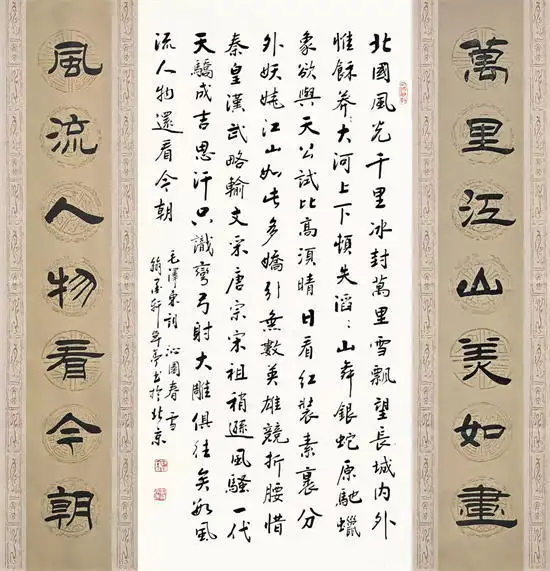 萬里江山美如畫
北國風光千里冰封萬里雪飄望長城内外
惟餘莽:大河上下頓失滔:山舞銀蛇原馳蠟
象欲與天公試比高須晴日看紅裝素裹分
外妖嬈江山如此多嬌引無數英雄競折腰惜
秦皇漢武略輸文采唐宗宋祖稍遜風騷一代
天驕成吉思汗只識彎弓射大雕俱往矣數風
流人物還看今朝
毛澤東詞 沁園春 雪
翰墨軒书於北京
風流人物看今朝